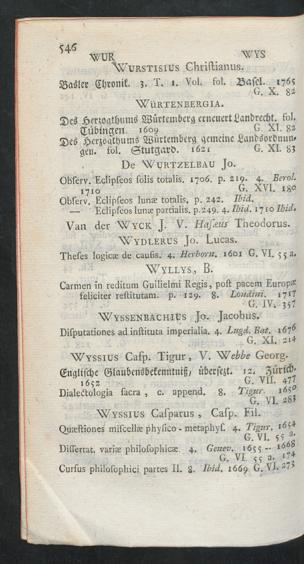 546
WUR WYS
WURSTISIUS Christianus.
Basler Chronik. 3. T. 1. Vol. fol. Basel. 1765
G. X. 82
WÜRTENBERGIA.
Des Hertzogthums Würtemberg erneuert Landrecht. fol.
Tübingen. 1609 G. XI. 82
Des Hertzogthums Würtemberg gemeine Landsordnun-
gen. fol. Stuttgard. 1621 G. XI. 83
De WURTZELBAU Jo.
Observ. Eclipseos solis totalis. 1706. p. 219. 4. Berol.
1710 G. XVI. 180
Observ. Eclipseos lunæ totalis, p. 242. Ibid.
— Eclipseos lunæ partialis. p. 249. 4. Ibid. 1710 Ibid.
Van der WYCK J. V. Hasæus Theodorus.
WYDLERUS Jo. Lucas.
Theses logicæ de causis. 4. Herborn. 1601 G VI. 55 a.
WYLLYS, B.
Carmen in reditum Guilielmi Regis, post pacem Europæ
feliciter restitutam. p. 129. 8. Londini. 1717
G. IV. 357
WYSSENBACHIUS Jo. Jacobus.
Disputationes ad instituta imperialia. 4. Lugd. Bat. 1676
G. XI. 214
WYSSIUS Casp. Tigur, V. Webbe Georg.
Englische Glaubensbekenntniß, übersezt. 12. Zürich.
1652 G. VII. 477
Dialectologia sacra, c. append. 8. Tigur. 1650
G. VI. 283
WYSSIUS Caspatus, Casp. Fil.
Quæstiones miscellæ physico-metaphys. 4. Tigur. 1654
G. VI. 55 a.
Dissertat. variæ philosophicæ. 4. Genev. 1655 - 1668
G. VI. 55 a. 174
Cursus philosophici partes II. 8. Ibid. 1669 G. VI. 275